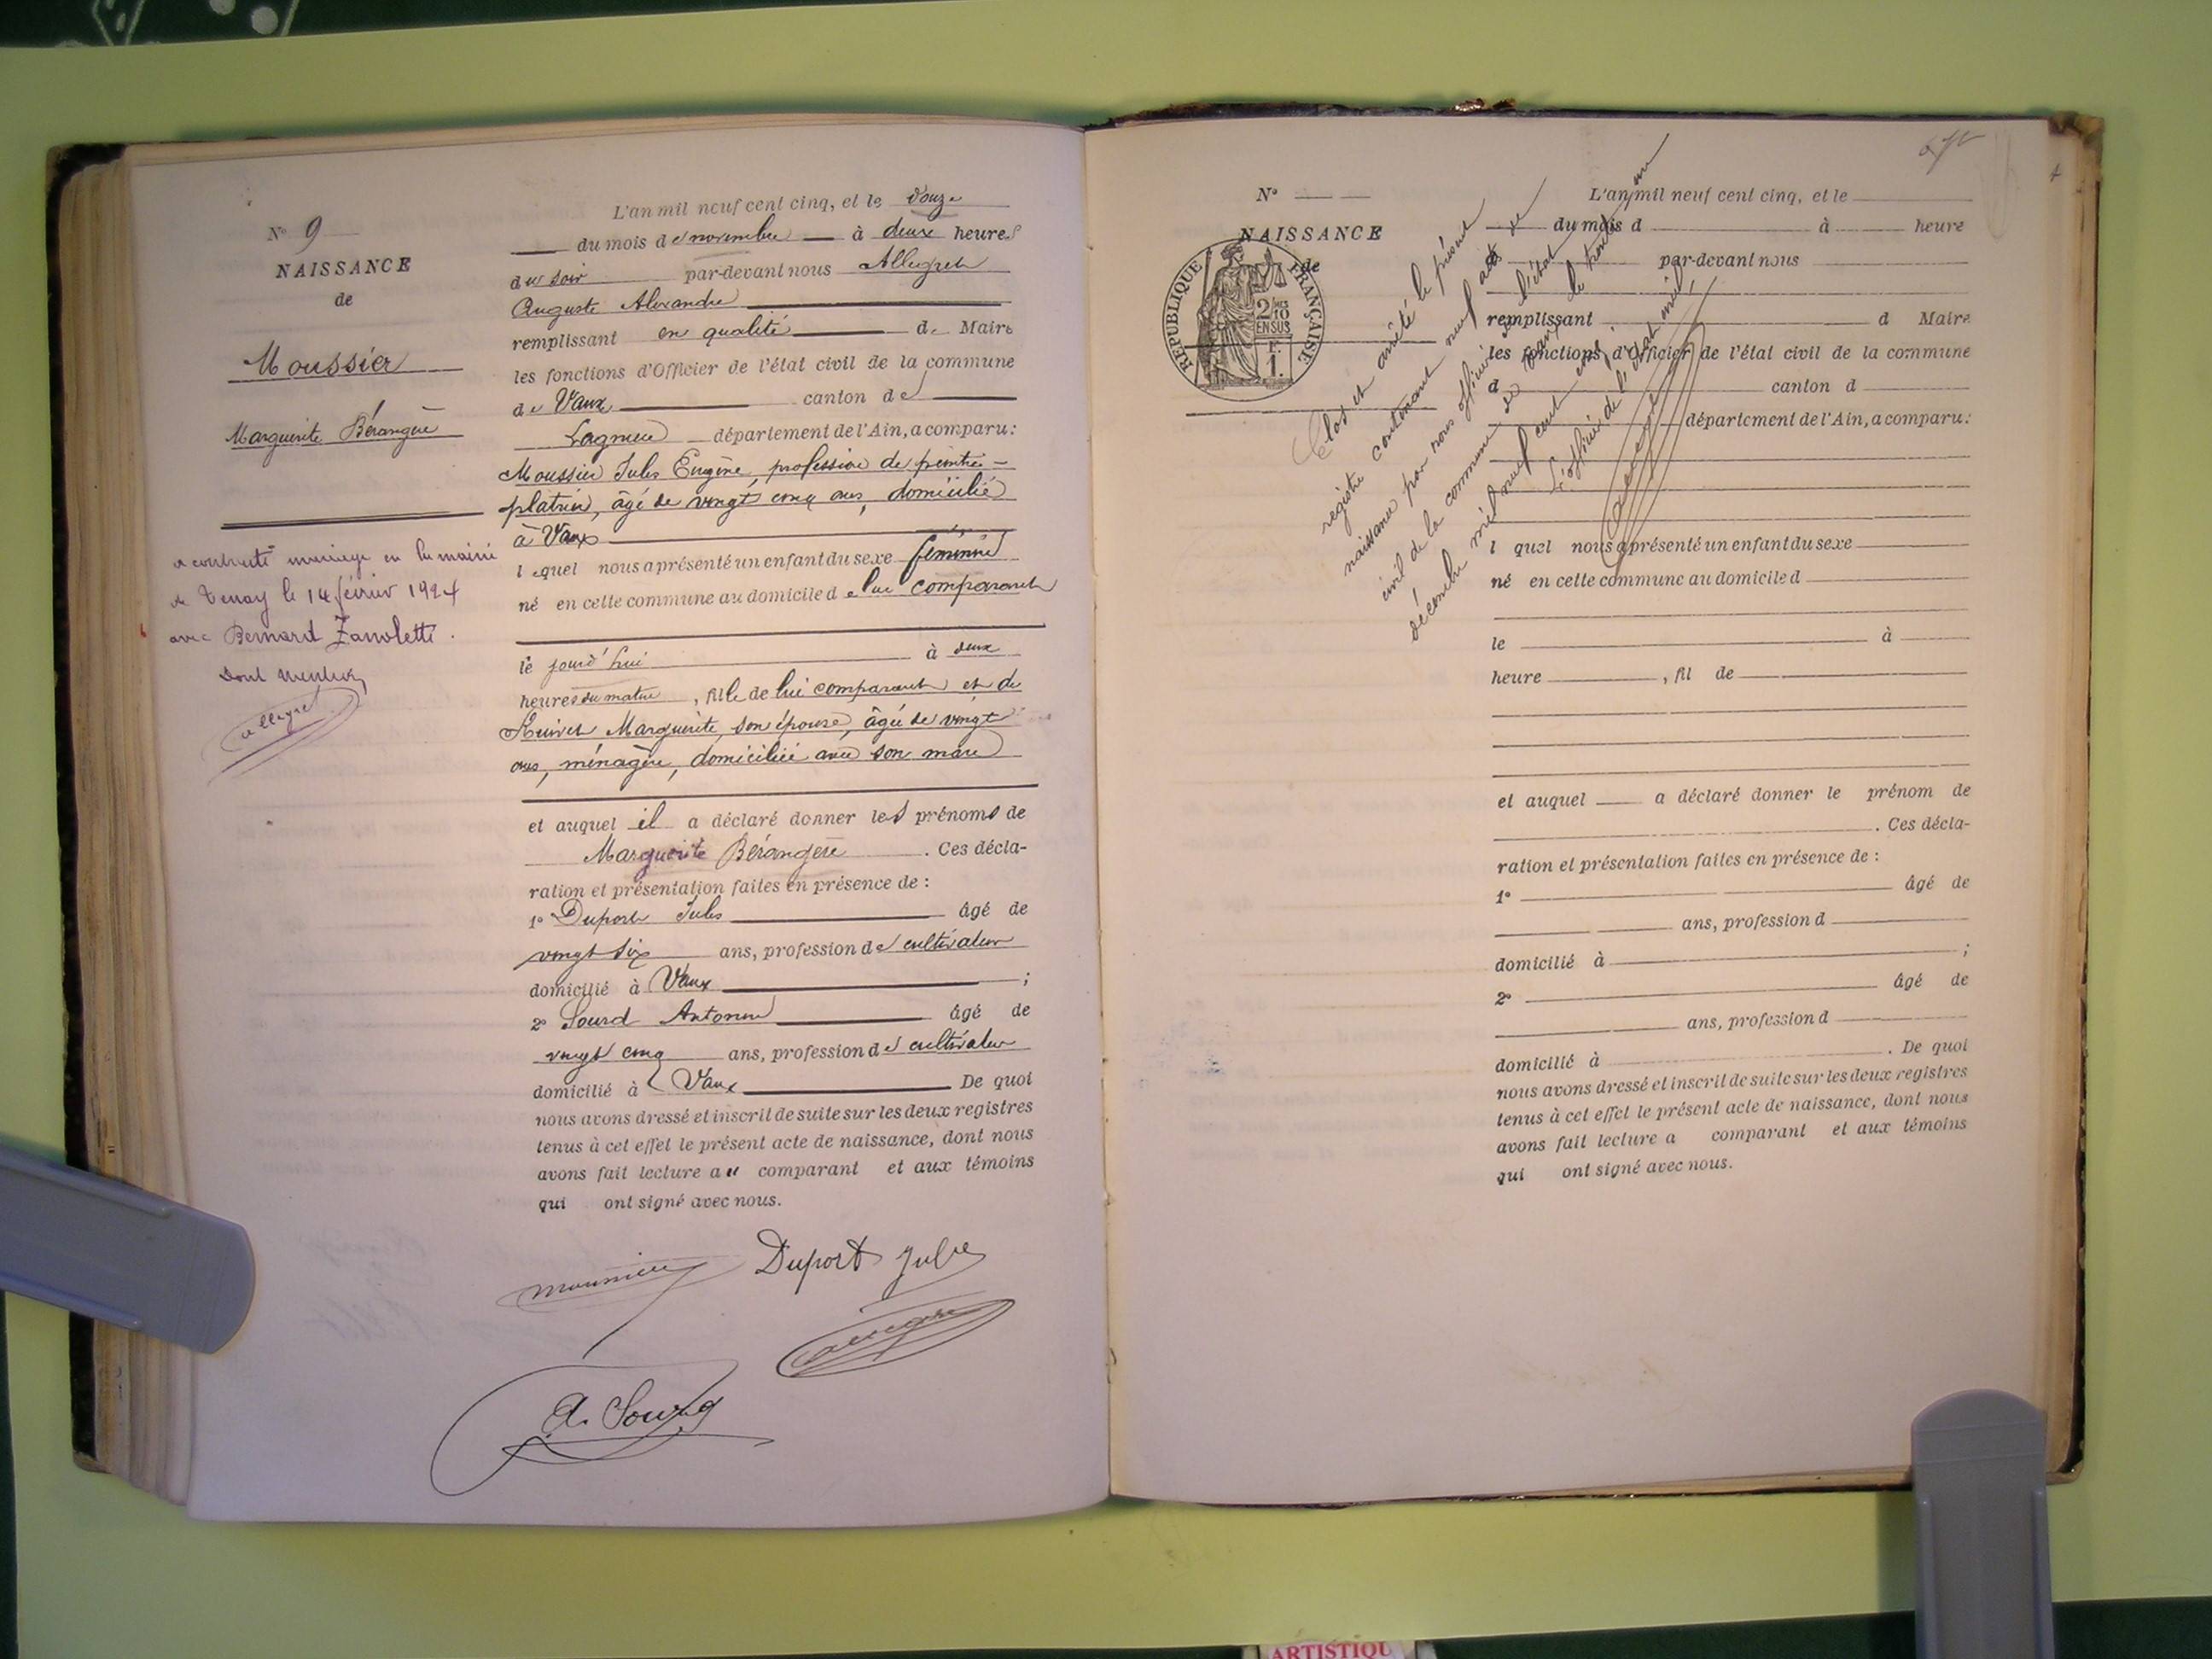 N° 9
NAISSANCE
de
Moussier
Marguerite Bérangère
a contracté mariage en la mairie
de Tenay le 14 février 1924
avec Bernard Zanoletti.
Dont mention
L'an mil neuf cent cinq, et le douze
du mois de novembre à deux heures
du soir par-devant nous Allegret
Auguste Alexandre
remplissant en qualité de Maire
les fonctions d'Officier de l'état civil de la commune
de Vaux canton de
Lagnieu département de l'Ain, a comparu:
Moussier Jules Eugène, profession de peintre-
platrier, âgé de vingt cinq ans, domicilié
à Vaux
lequel nous a présenté un enfant du sexe féminin
né en cette commune au domicile de lui comparant
le jourd'hui à deux
heures du matin, fille de lui comparant et de
Marguerite, son épouse, âgée de vingt
ans, ménagère, domiciliée avec son mari
et auquel il a déclaré donner les prénoms de
Marguerite Bérangère. Ces décla-
ration et présentation faites en présence de:
1° Duport Jules âgé de
vingt six ans, profession de cultivateur
domicilié à Vaux;
2° Sourd Antonin âgé de
vingt cinq ans, profession de cultivateur
domicilié à Vaux De quoi
nous avons dressé et inscrit de suite sur les deux registres
tenus à cet effet le présent acte de naissance, dont nous
avons fait lecture au comparant et aux témoins
qui ont signé avec nous.
Moussier Duport Jules
A. Sourd
N°
NAISSANCE
de
RÉPUBLIQUE FRANÇAISE
2/10 MES
EN SUS
1 F.
Clos et arrêté le présent
registre contenant neuf actes de
naissance par nous officier de l'état
civil de la commune de Vaux le trente un
décembre mil neuf cent cinq
L'officier de l'état civil,
L'an mil neuf cent cinq, et le
du mois d à heure
par-devant nous
remplissant d Maire
les fonctions d'Officier de l'état civil de la commune
d canton d
département de l'Ain, a comparu:
l quel nous a présenté un enfant du sexe
né en cette commune au domicile d
le à
heure , fil de
et auquel a déclaré donner le prénom de
. Ces décla-
ration et présentation faites en présence de:
1° âgé de
ans, profession d
domicilié à ;
2° âgé de
ans, profession d
domicilié à . De quoi
nous avons dressé et inscrit de suite sur les deux registres
tenus à cet effet le présent acte de naissance, dont nous
avons fait lecture a comparant et aux témoins
qui ont signé avec nous.
ARTISTIQU